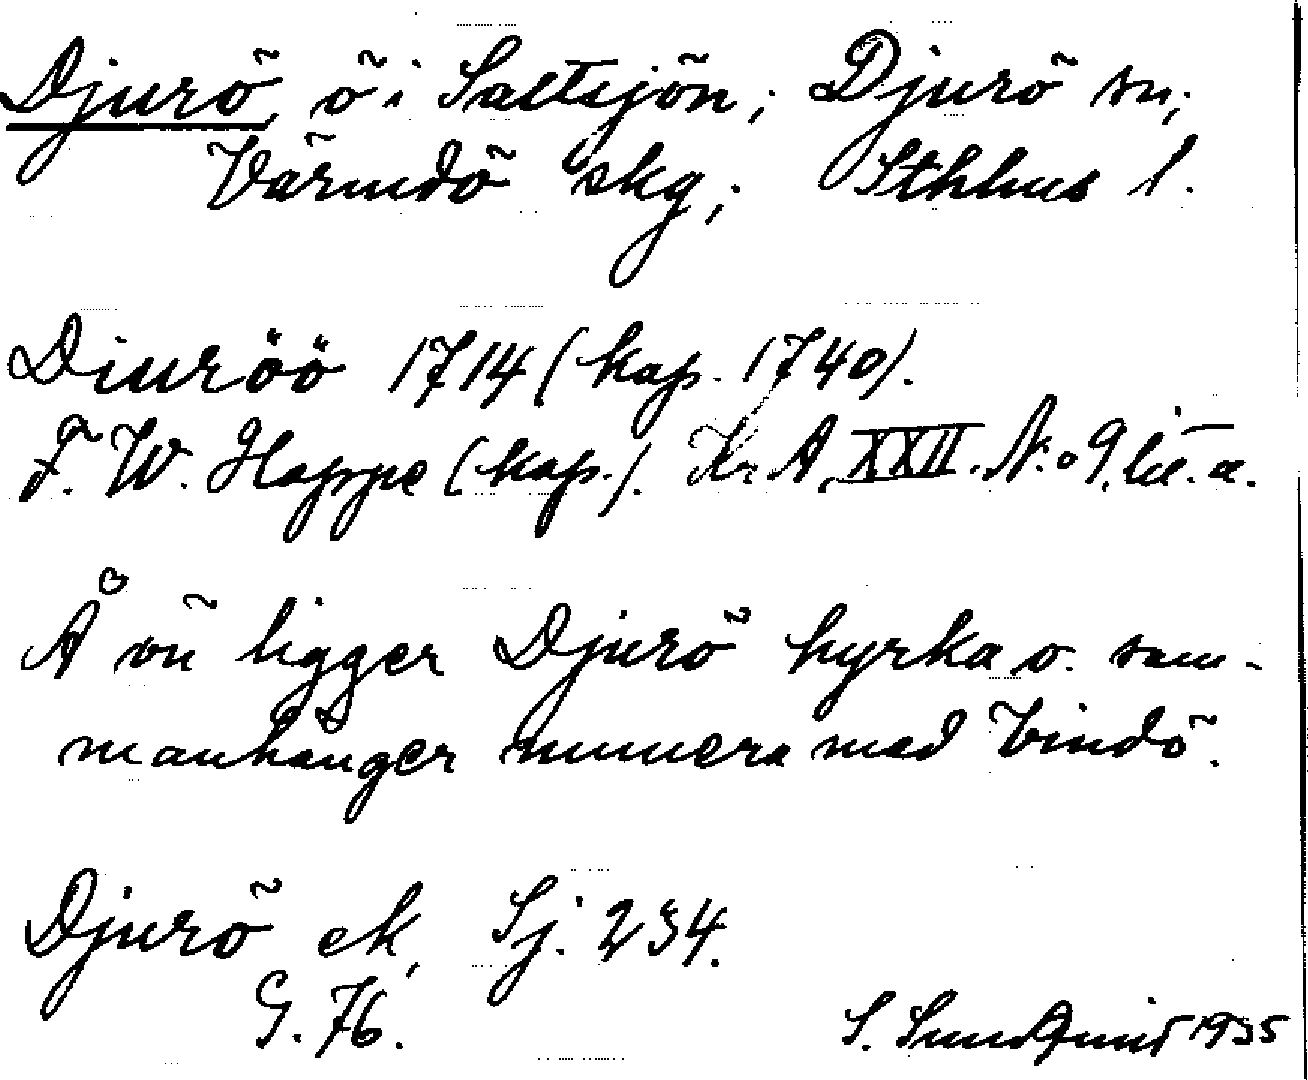 Djurö, ö i Saltsjön; Djurö sn;
Värmdö skg; Sthlms l.
Diuröö 1714 (kop. 1740).
F. W. Hoppe (kop.). Kr A, XXII. N:o 9, lit. a.
Å ön ligger Djurö kyrka o. sam-
manhänger numera med Vindö.
Djurö ek, Sj. 234.
G. 76.
S. Sundquist 1935